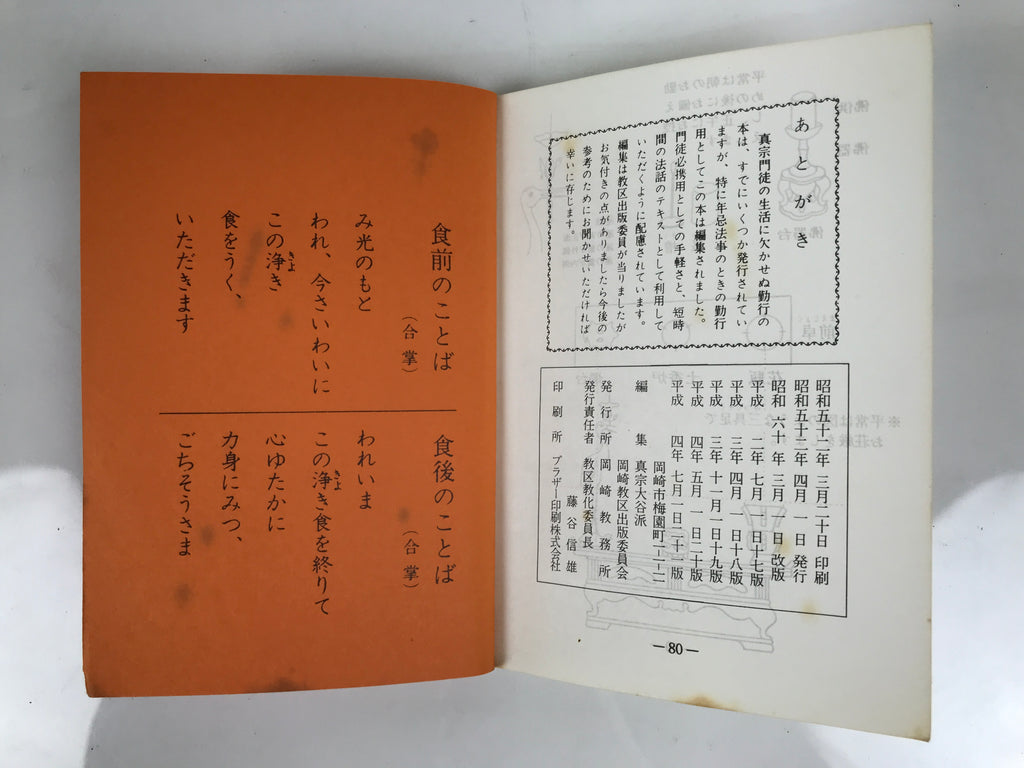 あとがき
真宗門徒の生活に欠かせぬ勤行の
本は、すでにいくつか発行されてい
ますが、特に年忌法事のときの勤行
用としてこの本は編集されました。
門徒必携用としての手軽さと、短時
間の法話のテキストとして利用して
いただくように配慮されています。
編集は教区出版委員が当りましたが
お気付きの点がありましたら今後の
参考のためにお聞かせいただければ
幸いに存じます。
昭和五十二年 三月二十日 印刷
昭和五十二年 四月一日 発行
昭和六十年 三月一日 改版
平成二年 七月一日 十七版
平成三年 四月一日 十八版
平成三年 十一月一日 十九版
平成四年 五月一日 二十版
平成四年 七月一日 二十一版
岡崎市梅園町一ー二
編集 真宗大谷派
岡崎教区出版委員会
発行所 岡崎教務所
発行責任者 教区教化委員長
藤谷信雄
印刷所 ブラザー印刷株式会社
―80―
食前のことば
(合掌)
み光のもと
われ、今さいわいに
この浄き
きよ
食をうく、
いただきます
食後のことば
(合掌)
われいま
この浄き食を終りて
きよ
心ゆたかに
力身にみつ、
ごちそうさま